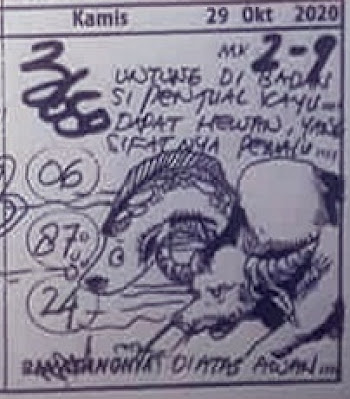 Kamis 29 Okt 2020
MK 2-9
3650
UNTUNG DI BADAN
SI PENJUAL KAYU...
DAPAT HEWAN, YANG
SIFATNYA PEMALU...
06
87
24
DIATAS AWAN...